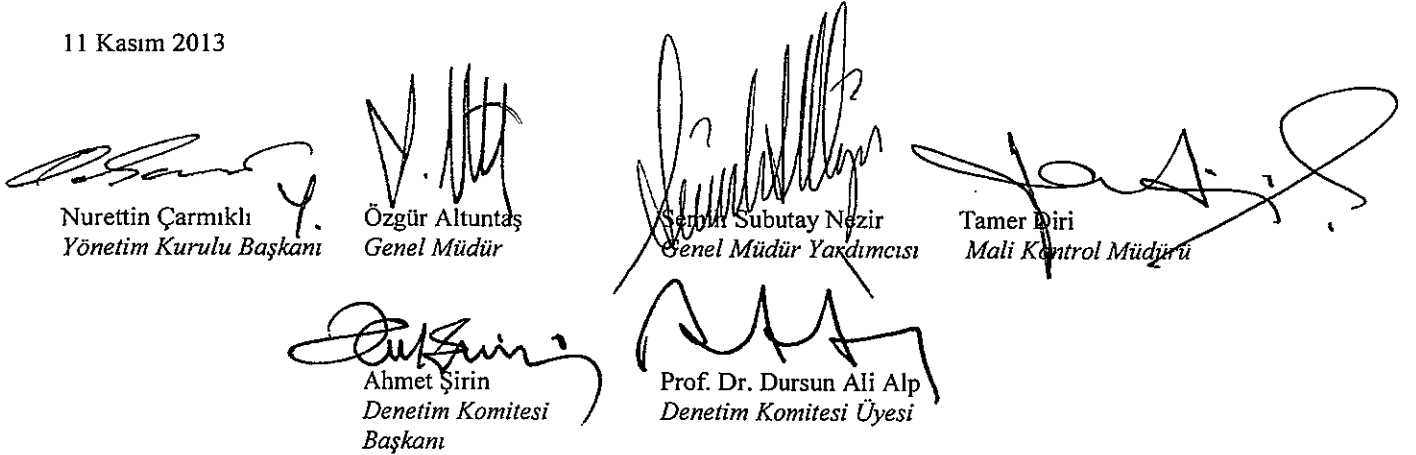 11 Kasım 2013
Nurettin Çarmıklı
Yönetim Kurulu Başkanı
Özgür Altuntaş
Genel Müdür
Semih Subutay Nezir
Genel Müdür Yardımcısı
Tamer Diri
Mali Kontrol Müdürü
Ahmet Şirin
Denetim Komitesi
Başkanı
Prof. Dr. Dursun Ali Alp
Denetim Komitesi Üyesi